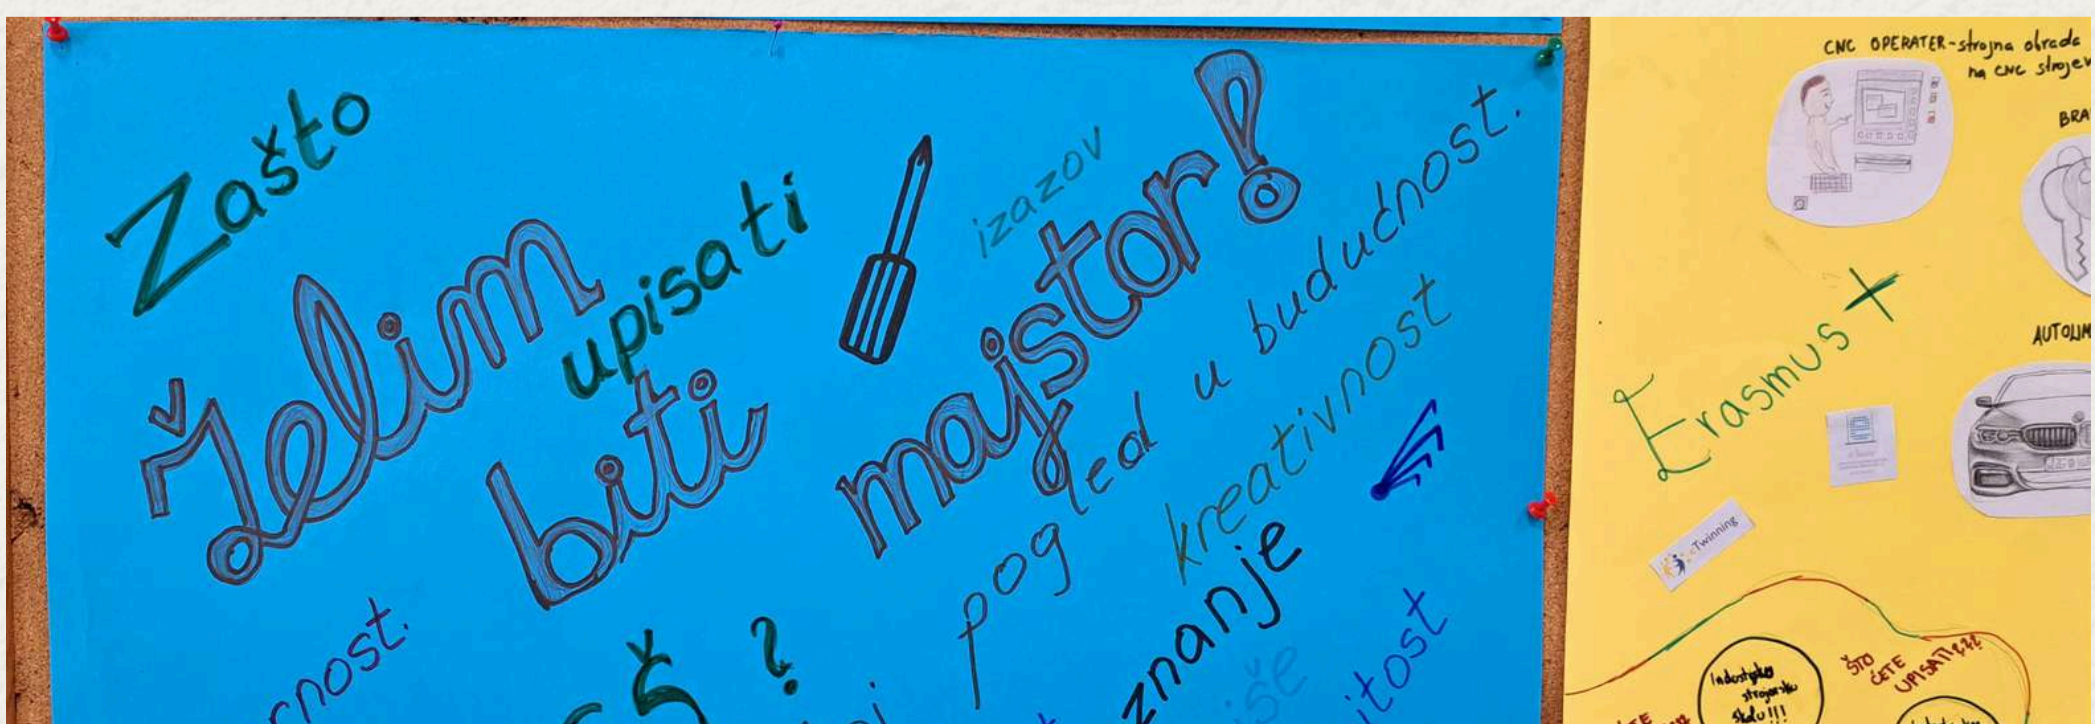 Zašto
upisati
Želim
biti
majstor!
izazov
pogled u budućnost.
kreativnost
znanje
?
CNC OPERATER-strojna obrada
na CNC strojev
BRA
AUTOLIM
Erasmus+
eTwinning
ŠTO
ĆETE
UPISATI???
Industrijsko
strojarsku
školu!!!